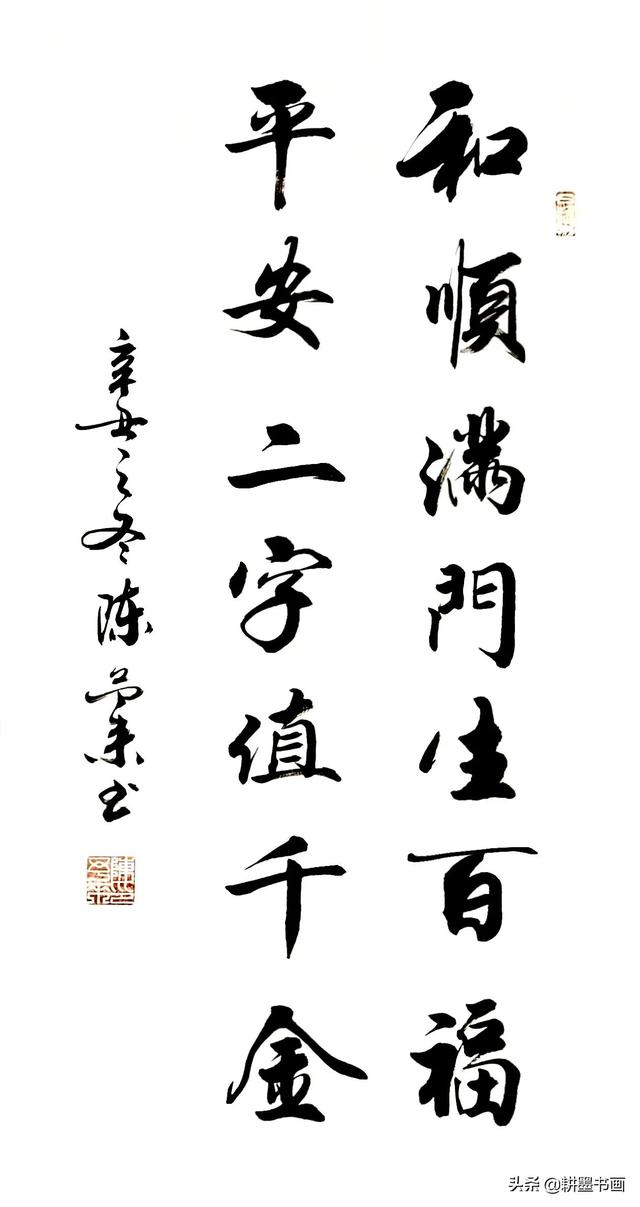 和順滿門生百福
平安二字值千金
辛丑之冬陈 書
头条 @耕墨书画